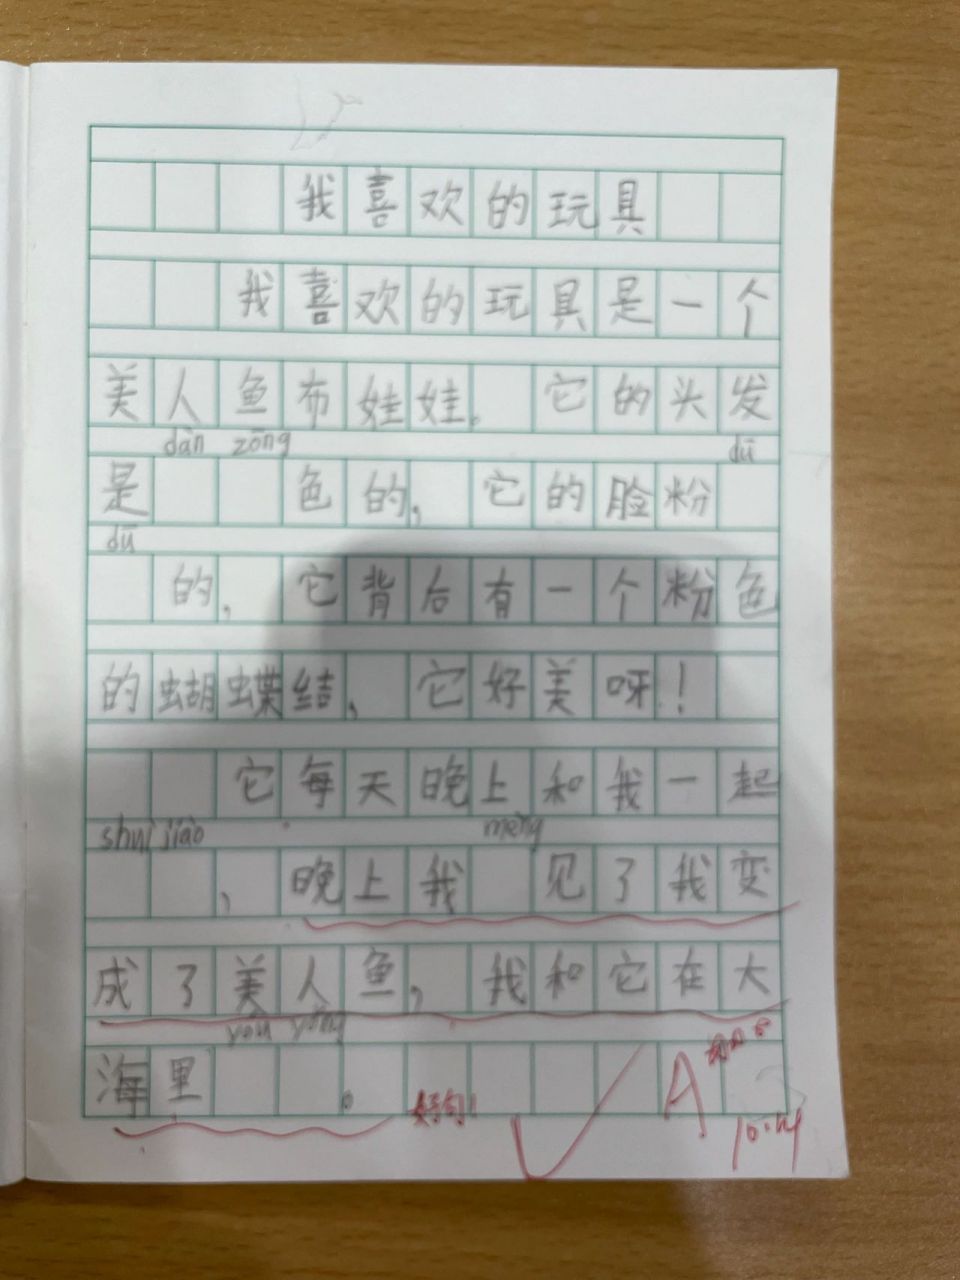 我喜欢的玩具
我喜欢的玩具是一个
美人鱼布娃娃。它的头发
dàn zōng dū
是 色的，它的脸粉
dū
的，它背后有一个粉色
的蝴蝶结，它好美呀！
它每天晚上和我一起
shuì jiào mèng
，晚上我 见了我变
成了美人鱼，我和它在大
yóu yǒng
海里 。
好句！
A
10.14